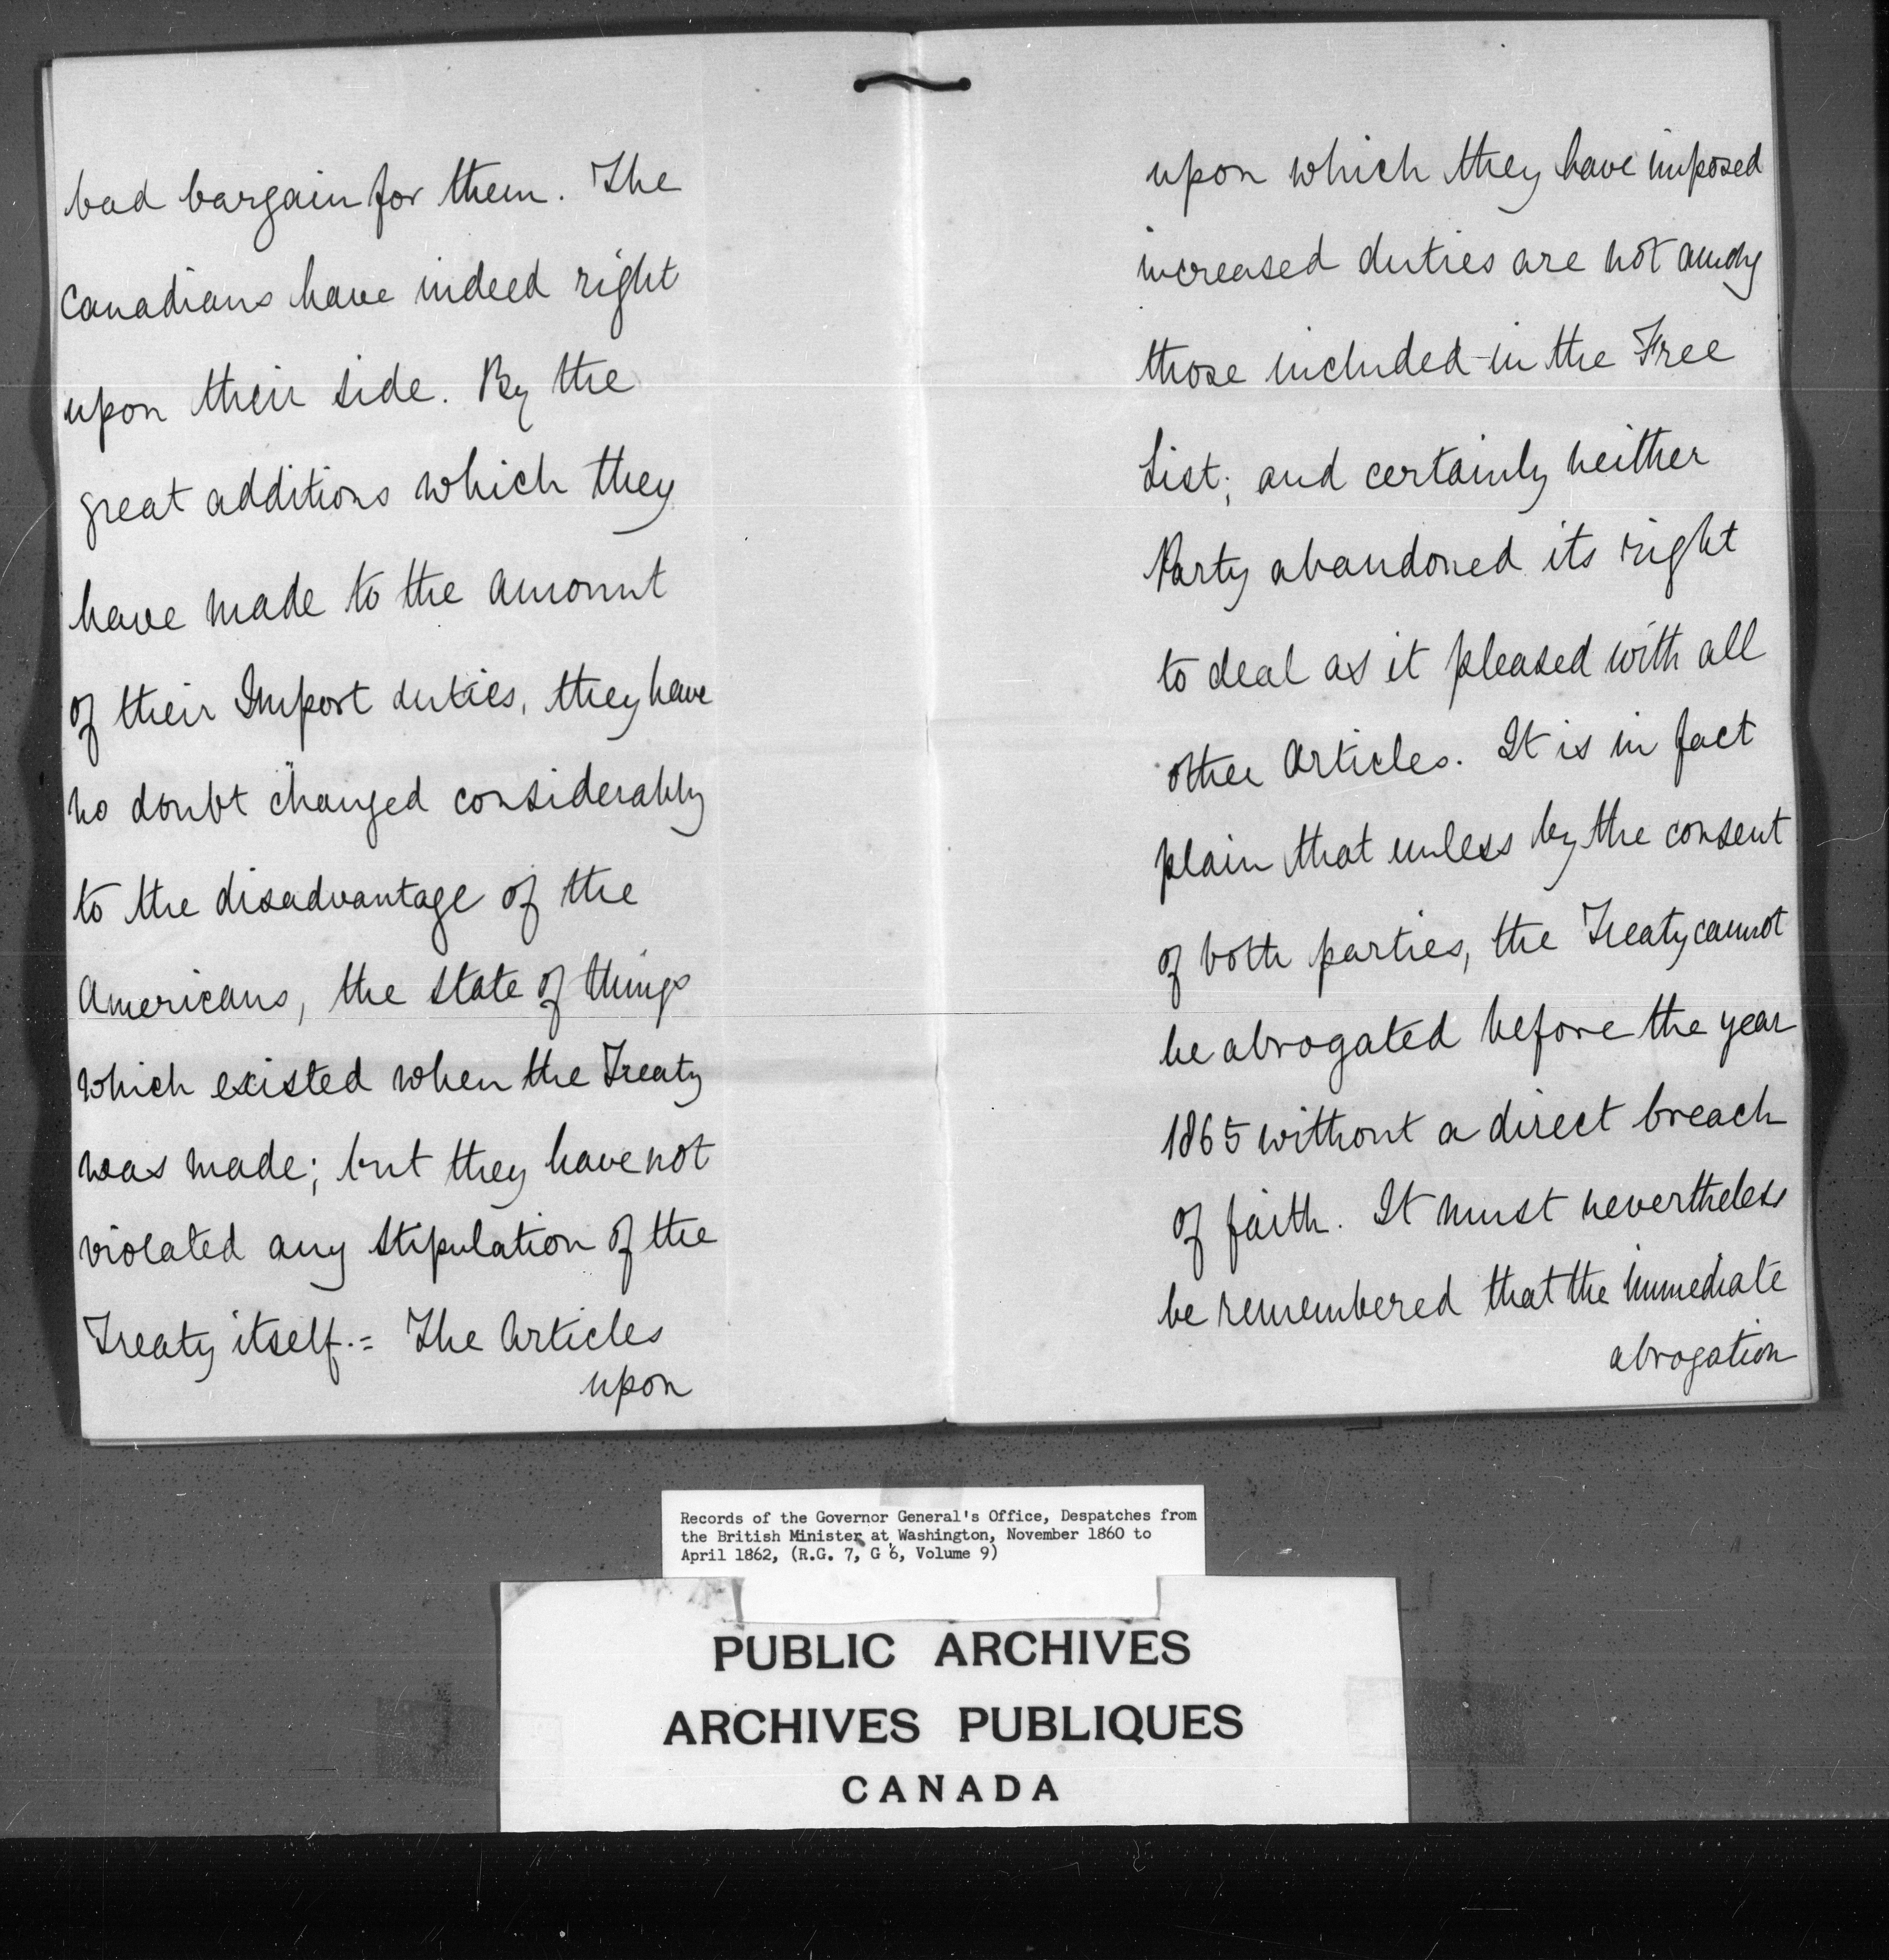 bad bargain for them. The
Canadians have indeed right
upon their side. By the
great additions which they
have made to the amount
of their Import duties, they have
no doubt changed considerably
to the disadvantage of the
Americans, the state of things
which existed when the Treaty
was made; but they have not
violated any stipulation of the
Treaty itself.= The Articles
upon
upon which they have imposed
increased duties are not among
those included in the Free
List; and certainly neither
Party abandoned its right
to deal as it pleased with all
other Articles. It is in fact
plain that unless by the consent
of both parties, the Treaty cannot
be abrogated before the year
1865 without a direct breach
of faith. It must nevertheless
be remembered that the immediate
abrogation
Records of the Governor General's Office, Despatches from
the British Minister at Washington, November 1860 to
April 1862, (R.G. 7, G 6, Volume 9)
PUBLIC ARCHIVES
ARCHIVES PUBLIQUES
CANADA